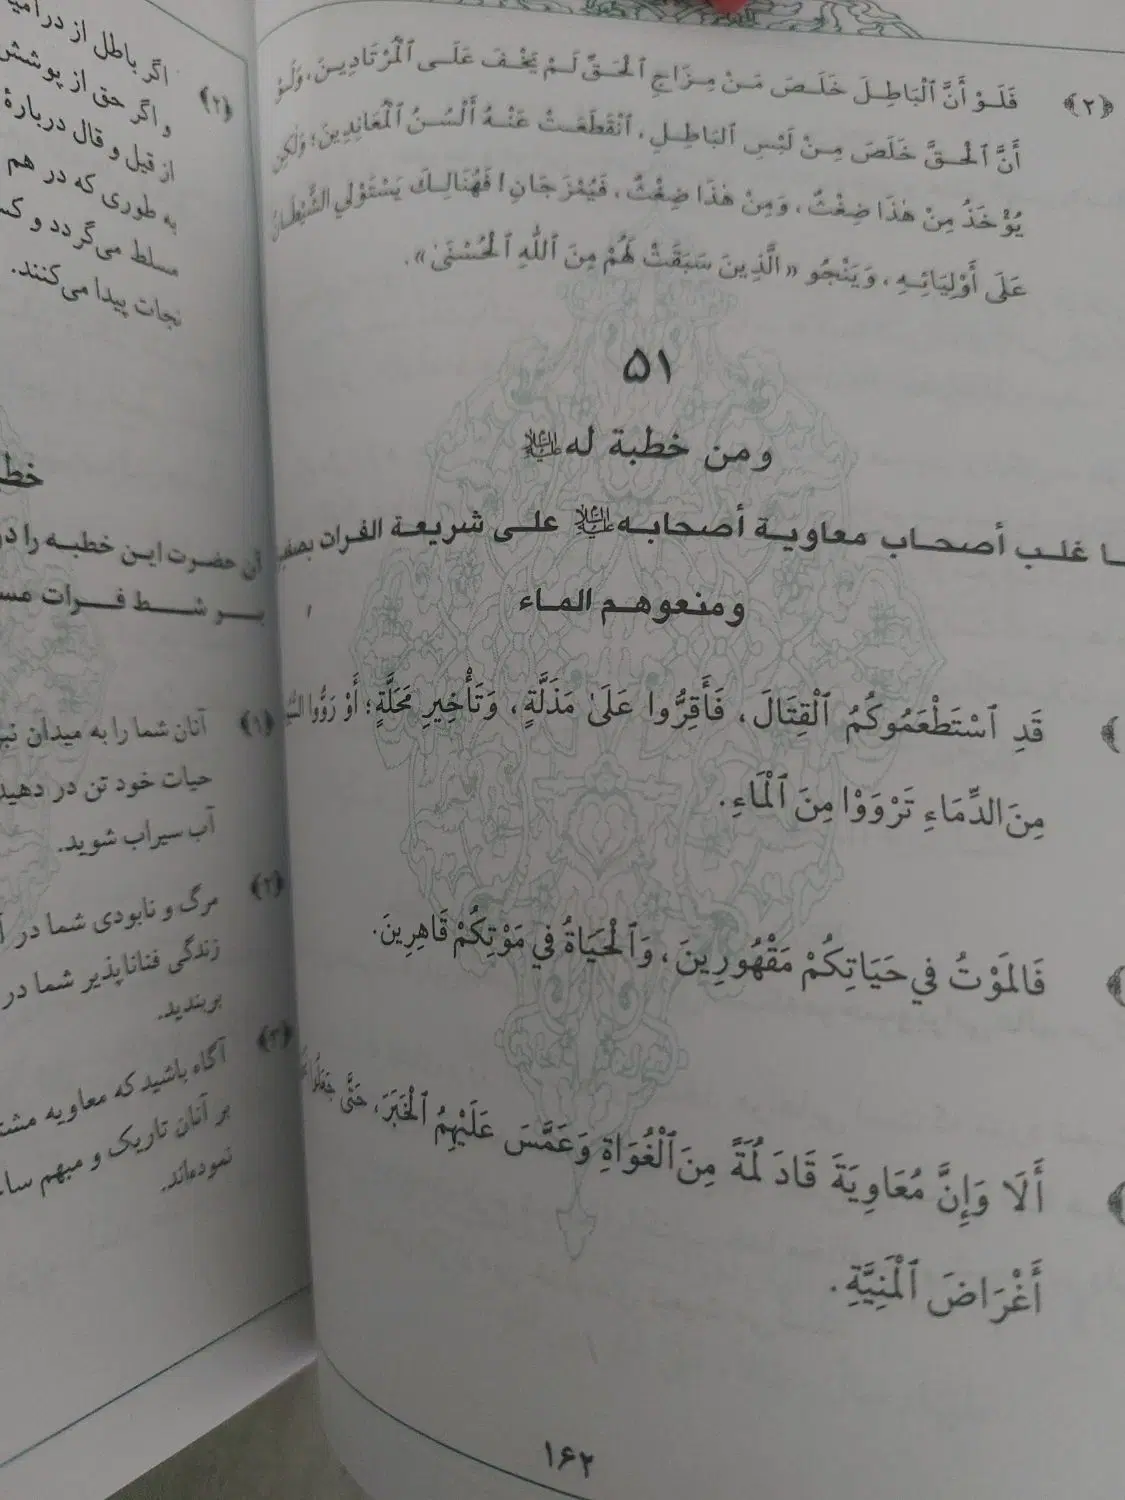 ﴿۲﴾ فَلَوْ أَنَّ ٱلْبَاطِلَ خَلَصَ مَنْ مِزَاجِ ٱلْحَقِّ لَمْ يَخْفَ عَلَى ٱلْمُرْتَادِينَ، وَلَوْ
أَنَّ ٱلْحَقَّ خَلَصَ مِنْ لَبْسِ البَاطِلِ، ٱنْقَطَعَتْ عَنْهُ أَلْسُنُ ٱلْمُعَانِدِينَ؛ وَلٰكِن
يُؤْخَذُ مِنْ هٰذَا ضِغْثٌ، وَمِنْ هٰذَا ضِغْثٌ، فَيُمْزَجَانِ! فَهُنَالِكَ يَسْتَوْلي الشَّيْطَانُ
عَلَى أَوْلِيَائِهِ، وَيَنْجُو «الَّذِينَ سَبَقَتْ لَهُمْ مِنَ ٱللهِ ٱلْحُسْنَىٰ».
۵۱
ومن خطبة له عليه السلام
غلب أصحاب معاوية أصحابه عليه السلام على شريعة الفرات بصفين
ومنعوهم الماء
قَدِ ٱسْتَطْعَمُوكُمُ ٱلْقِتَالَ، فَأَقِرُّوا عَلَىٰ مَذَلَّةٍ، وَتَأْخِيرِ مَحَلَّةٍ؛ أَوْ رَوُّوا
مِنَ الدِّمَاءِ تَرْوَوْا مِنَ ٱلْمَاءِ.
فَالمَوْتُ في حَيَاتِكُمْ مَقْهُورِينَ، وَٱلْحَيَاةُ في مَوْتِكُمْ قَاهِرِينَ.
أَلَا وَإِنَّ مُعَاوِيَةَ قَادَ لُمَةً مِنَ ٱلْغُوَاةِ وَعَمَّسَ عَلَيْهِمُ ٱلْخَبَرَ، حَتَّى جَعَلُوا
أَغْرَاضَ ٱلْمَنِيَّةِ.
۱۶۲
اگر باطل از در
﴿۲﴾ و اگر حق از پوشش
از قیل و قال دربارهٔ
به طوری که در هم
مسلط می‌گردد و
نجات پیدا می‌کنند.
آن حضرت این خطبه را در
بر شط فرات
﴿۱﴾ آنان شما را به میدان
حیات خود تن در دهید
آب سیراب شوید.
﴿۲﴾ مرگ و نابودی شما در
زندگی فناناپذیر شما در
بربندید.
﴿۳﴾ آگاه باشید که معاویه
بر آنان تاریک و مبهم
نموده‌اند.